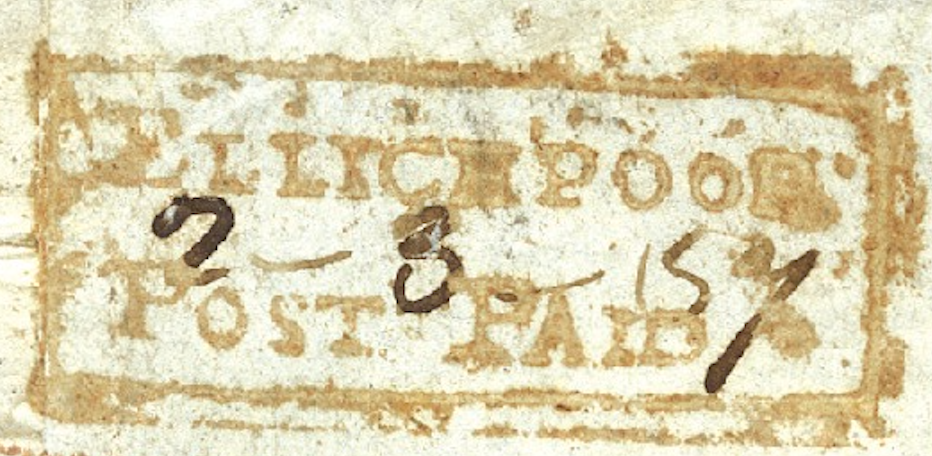 ELLICHPOOR
2 - 8 - 57
POST PAID